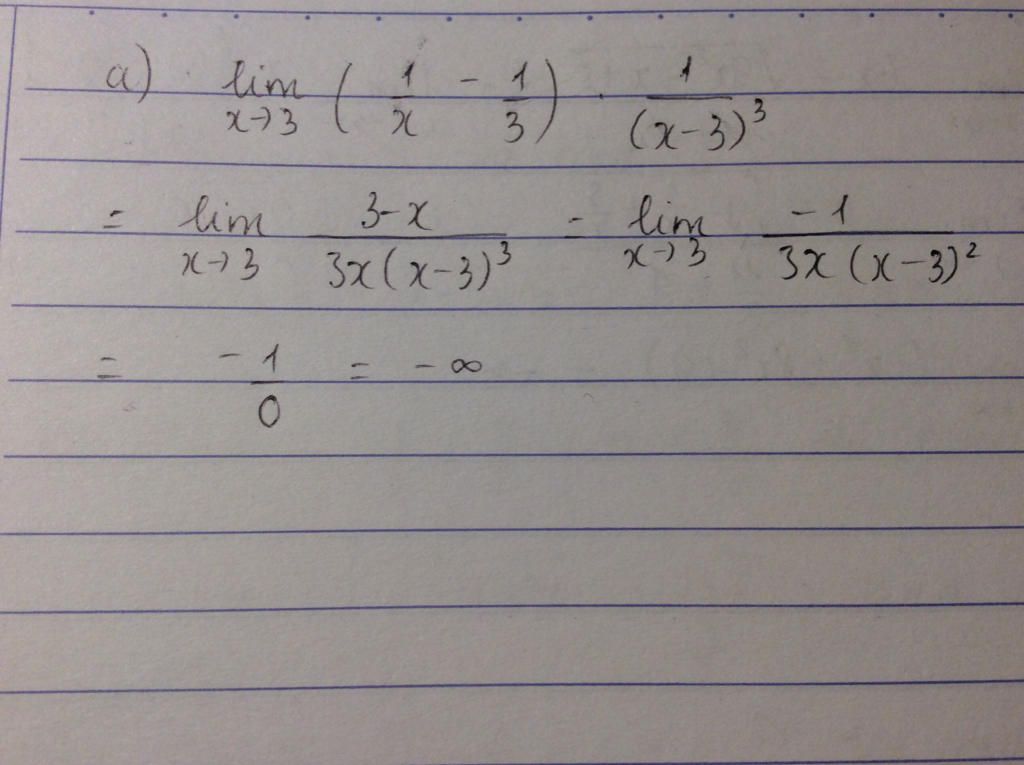 a) lim x→3 (1/x - 1/3) . 1/(x-3)³
= lim x→3 3-x/3x(x-3)³ = lim x→3 -1/3x(x-3)²
= -1/0 = -∞